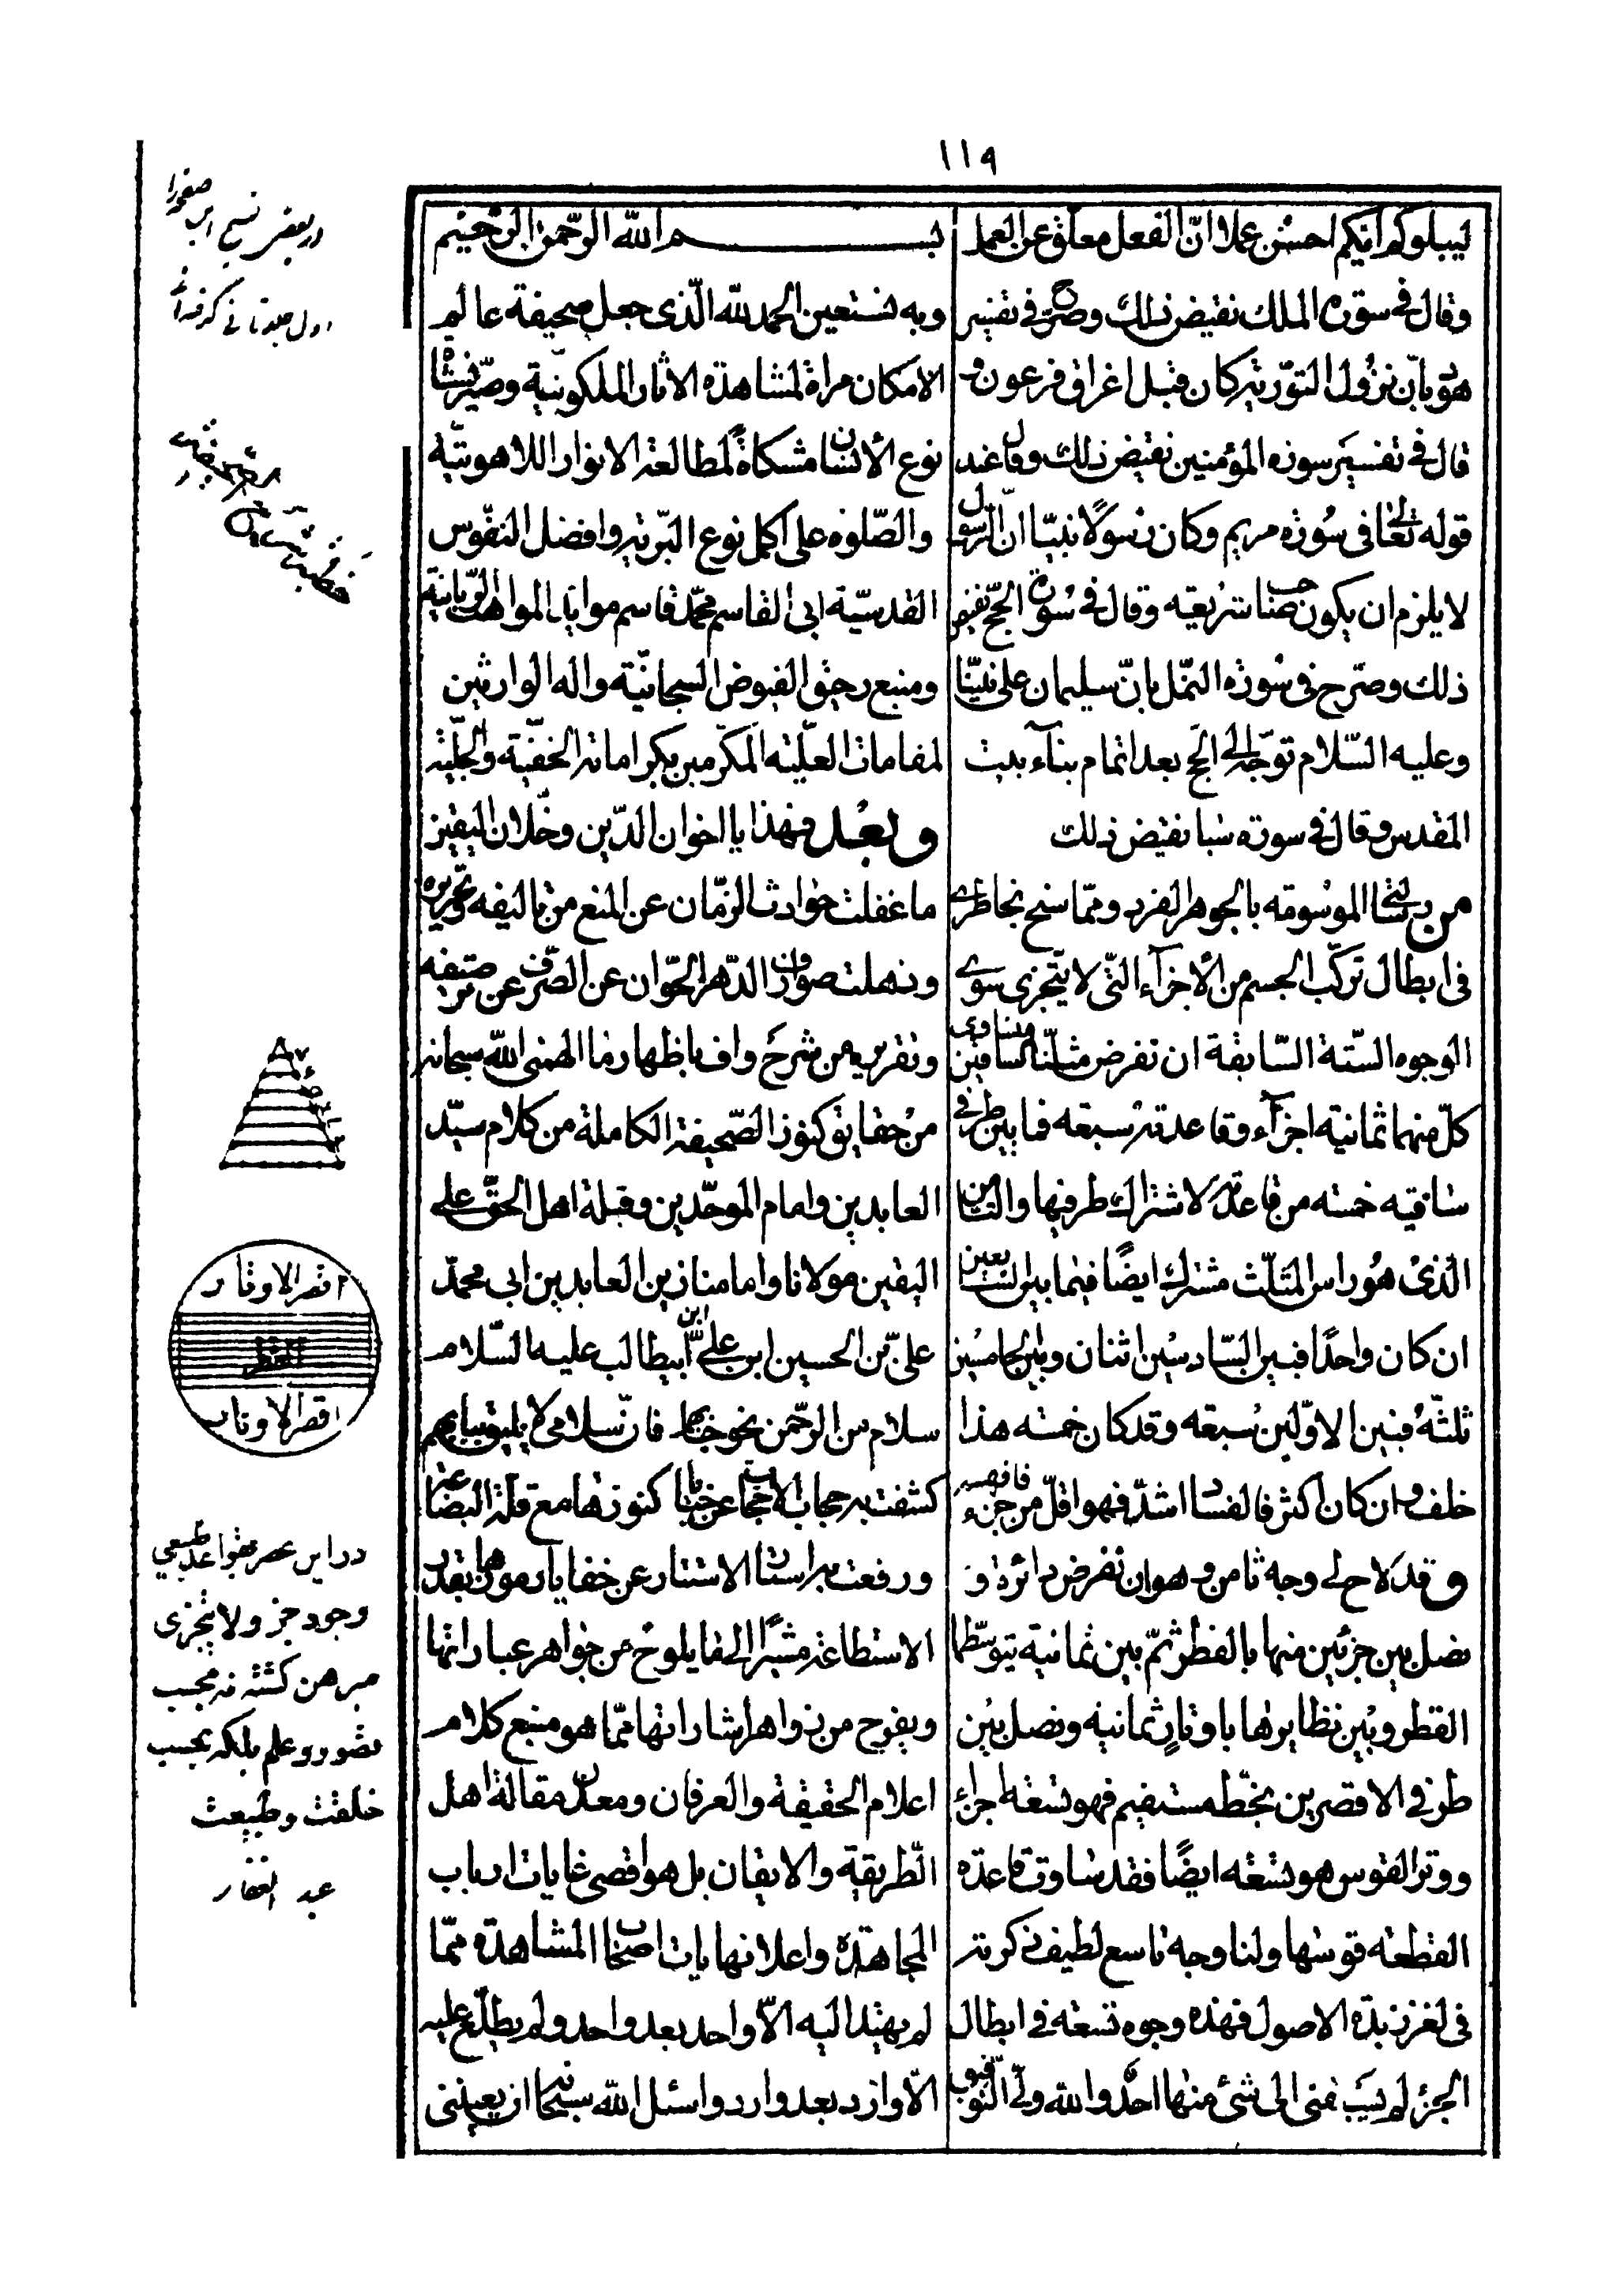 ١١٩
ليبلوكم ايكم احسن عملا انّ الفعل معلق عن العمل
وقال في سورة الملك نقيض ذلك وصرّح في تفسير
هود بأن نزول التورية كان قبل اغراق فرعون و
قال في تفسير سورة المؤمنين نقيض ذلك وقال عند
قوله تعالى في سورة مريم وكان رسولا نبيّا انّ الرسول
لا يلزم ان يكون صاحب شريعة وقال في سورة الحجّ نقيض
ذلك وصرّح في سورة النمل بانّ سليمان على نبيّنا
وعليه السّلام توجّه الى الحج بعد اتمام بنآء بيت
المقدس وقال في سورة سبا نقيض ذلك
من رسالتنا الموسومة بالجوهر الفرد وممّا سنح بخاطري
في ابطال تركّب الجسم من الأجزآء التّي لا يتجزى سوى
الوجوه الستة السّابقة ان نفرض مثلّثا متساوي الساقين
كلّ منهما ثمانية اجزآء وقاعدته سبعة فما بين طرفي
ساقيه خمسة من قاعدته لاشتراك طرفيها والثامن
الّذي هو راس المثلّث مشترك ايضًا فيما بين السابعين
ان كان واحدًا فبين السّادسين اثنان وبين الخامسين
ثلثة فبين الاوّلين سبعة وقد كان خمسة هذا
خلف وان كان اكثر فالفساد اشدّ فهو اقلّ من جزء فافهم
وقد لاح لي وجه ثامن وهو ان نفرض دائرة و
نصل بين جزئين منها بالقطر ثمّ بين ثمانية يتوسّطها
القطر وبين نظايرها باوتار ثمانية ونصل بين
طرفي الاقصرين بخطّ مستقيم فهو تسعة اجزاء
ووتر القوس هو تسعة ايضًا فقد ساوت قاعدة
القطعة قوسها ولنا وجه تاسع لطيف ذكرته
في لغز زبدة الاصول فهذه وجوه تسعة في ابطال
الجزء لم يسبقني الى شئ منها احد والله ولي التوفيق
بسم الله الرّحمن الرّحيم
وبه نستعين الحمد لله الّذي جعل صحيفة عالم
الامكان مراة لمشاهدة الاثار الملكوتيّة وصيّر نشاة
نوع الأنسان مشكاةً لمطالعة الانوار اللاهوتيّة
والصّلوة على اكمل نوع البريّة وافضل النفوس
القدسيّة ابي القاسم محمّد قاسم موايد المواهب الرّبّانية
ومنبع رحيق الفيوض السبحانيّة واله الوارثين
لمقاماته العليّة المكرّمين بكراماته الخفيّة والجليّة
وبعد فهذا يا اخوان الدّين وخلّان اليقين
ما غفلت حوادث الزّمان عن المنع من تاليفه وتحريره
وذهلت صوارف الدّهر الخوّان عن الصّرف عن ترصيفه
وتقريره من شرح واف باظهار ما الهمني الله سبحانه
من حقايق كنوز الصّحيفة الكاملة من كلام سيّد
العابدين وامام الموحّدين وقبلة اهل الحقّ على
اليقين مولانا وامامنا زين العابدين ابي محمّد
عليّ بن الحسين ابن عليّ ابن ابيطالب عليه السّلام
سلام من الرّحمن نحو جنابهم فان سلامي لا يليق ببابهم
كشفت به حجاب الاحتجاب عن خبايا كنوزها مع قلة البضاعة
ورفعت به استار الاستتار عن خفايا رموزها بقدر
الاستطاعة مشيرًا الى ما يلوح من جواهر عباراتها
ويفوح من زواهر اشاراتها ممّا هو منبع كلام
اعلام الحقيقة والعرفان ومعدن مقالة اهل
الطّريقة والايقان بل هو اقصى غايات ارباب
المجاهدة واعلا نهايات اصحاب المشاهدة ممّا
لم يهتد اليه الّا واحد بعد واحد ولم يطلّع عليه
الّا وارد بعد وارد واسئل الله سبحانه ان يعينني
در بعض نسخ اين
اقصر الاوتار
القطر
اقصر الاوتار
در اين عصر بقواعد طبيعي
وجود جزء ولا يتجزى
مبرهن گشته نه بحسب
تصور وعلم بلكه بحسب
خلقت وطبيعت
عبد الغفار